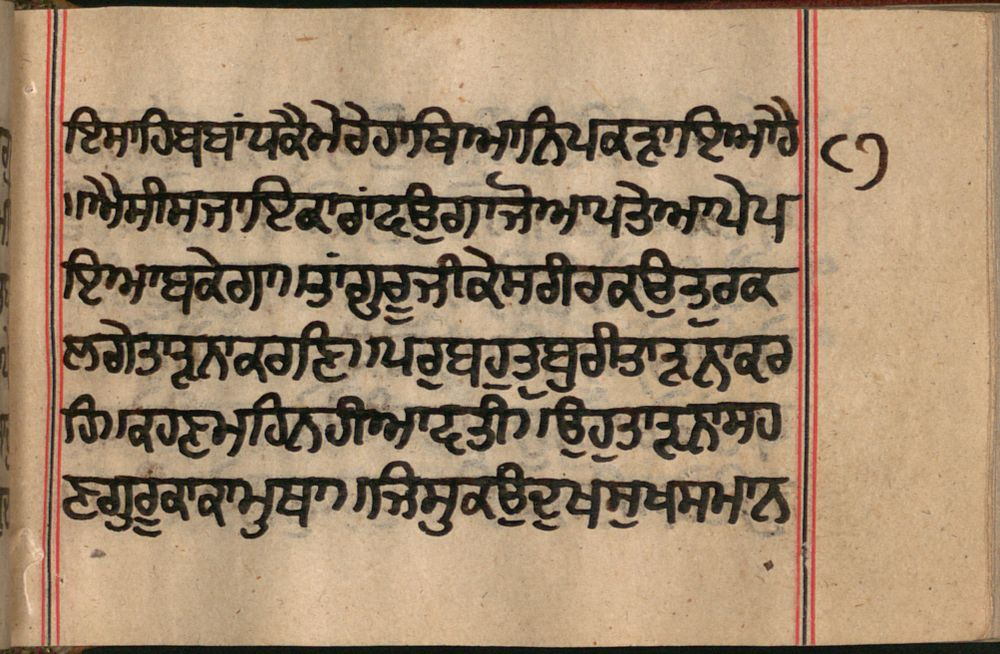 ਇਸਾਹਿਬਬਾਂਧਕੈਮੇਰੇਹਾਥਿਆਨਿਪਕੜਾਇਆਹੈ
॥ਐਸੀਸਜਾਇਕਾਰਾਂਦਉਗਾਜੋਆਪਤੇਆਪੇਪ
ਇਆਬਕੇਗਾ॥ਤਾਂਗੁਰੂਜੀਕੇਸਰੀਰਕਉਤੁਰਕ
ਲਗੇਤਾੜਨਾਕਰਣਿ॥ਪਰੁਬਹੁਤੁਬੁਰੀਤਾੜਨਾਕਰ
ਹਿ॥ਕਹਣਮਹਿਨਹੀਆਵਤੀ॥ਉਹੁਤਾੜਨਾਸਹ
ਣਗੁਰੂਕਾਕਾਮੁਥਾ॥ਜਿਸੁਕਉਦੁਖਸੁਖਸਮਾਨ
੮੭